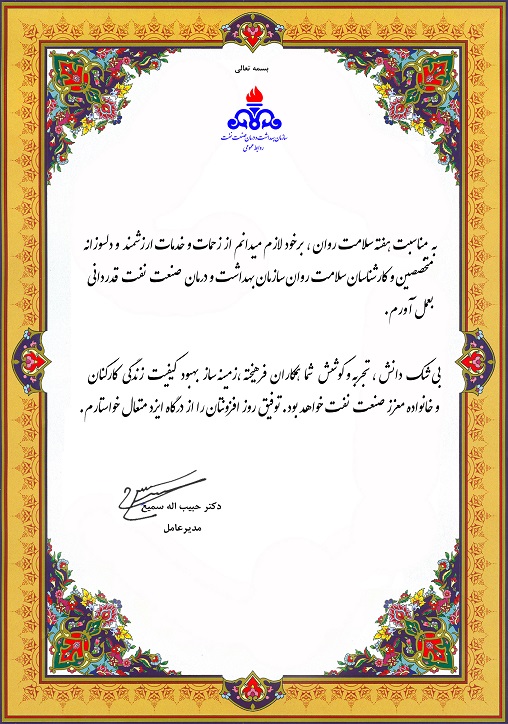 بسمه تعالی
سازمان بهداشت و درمان صنعت نفت
روابط عمومی
به مناسبت هفته سلامت روان ، برخود لازم میدانم از زحمات و خدمات ارزشمند و دلسوزانه
متخصصین و کارشناسان سلامت روان سازمان بهداشت و درمان صنعت نفت قدردانی
بعمل آورم.
بی شک دانش ، تجربه و کوشش شما همکاران فرهیخته ،زمینه ساز بهبود کیفیت زندگی کارکنان
و خانواده معزز صنعت نفت خواهد بود. توفیق روز افزونتان را از درگاه ایزد متعال خواستارم.
دکتر حبیب اله سمیع
مدیرعامل